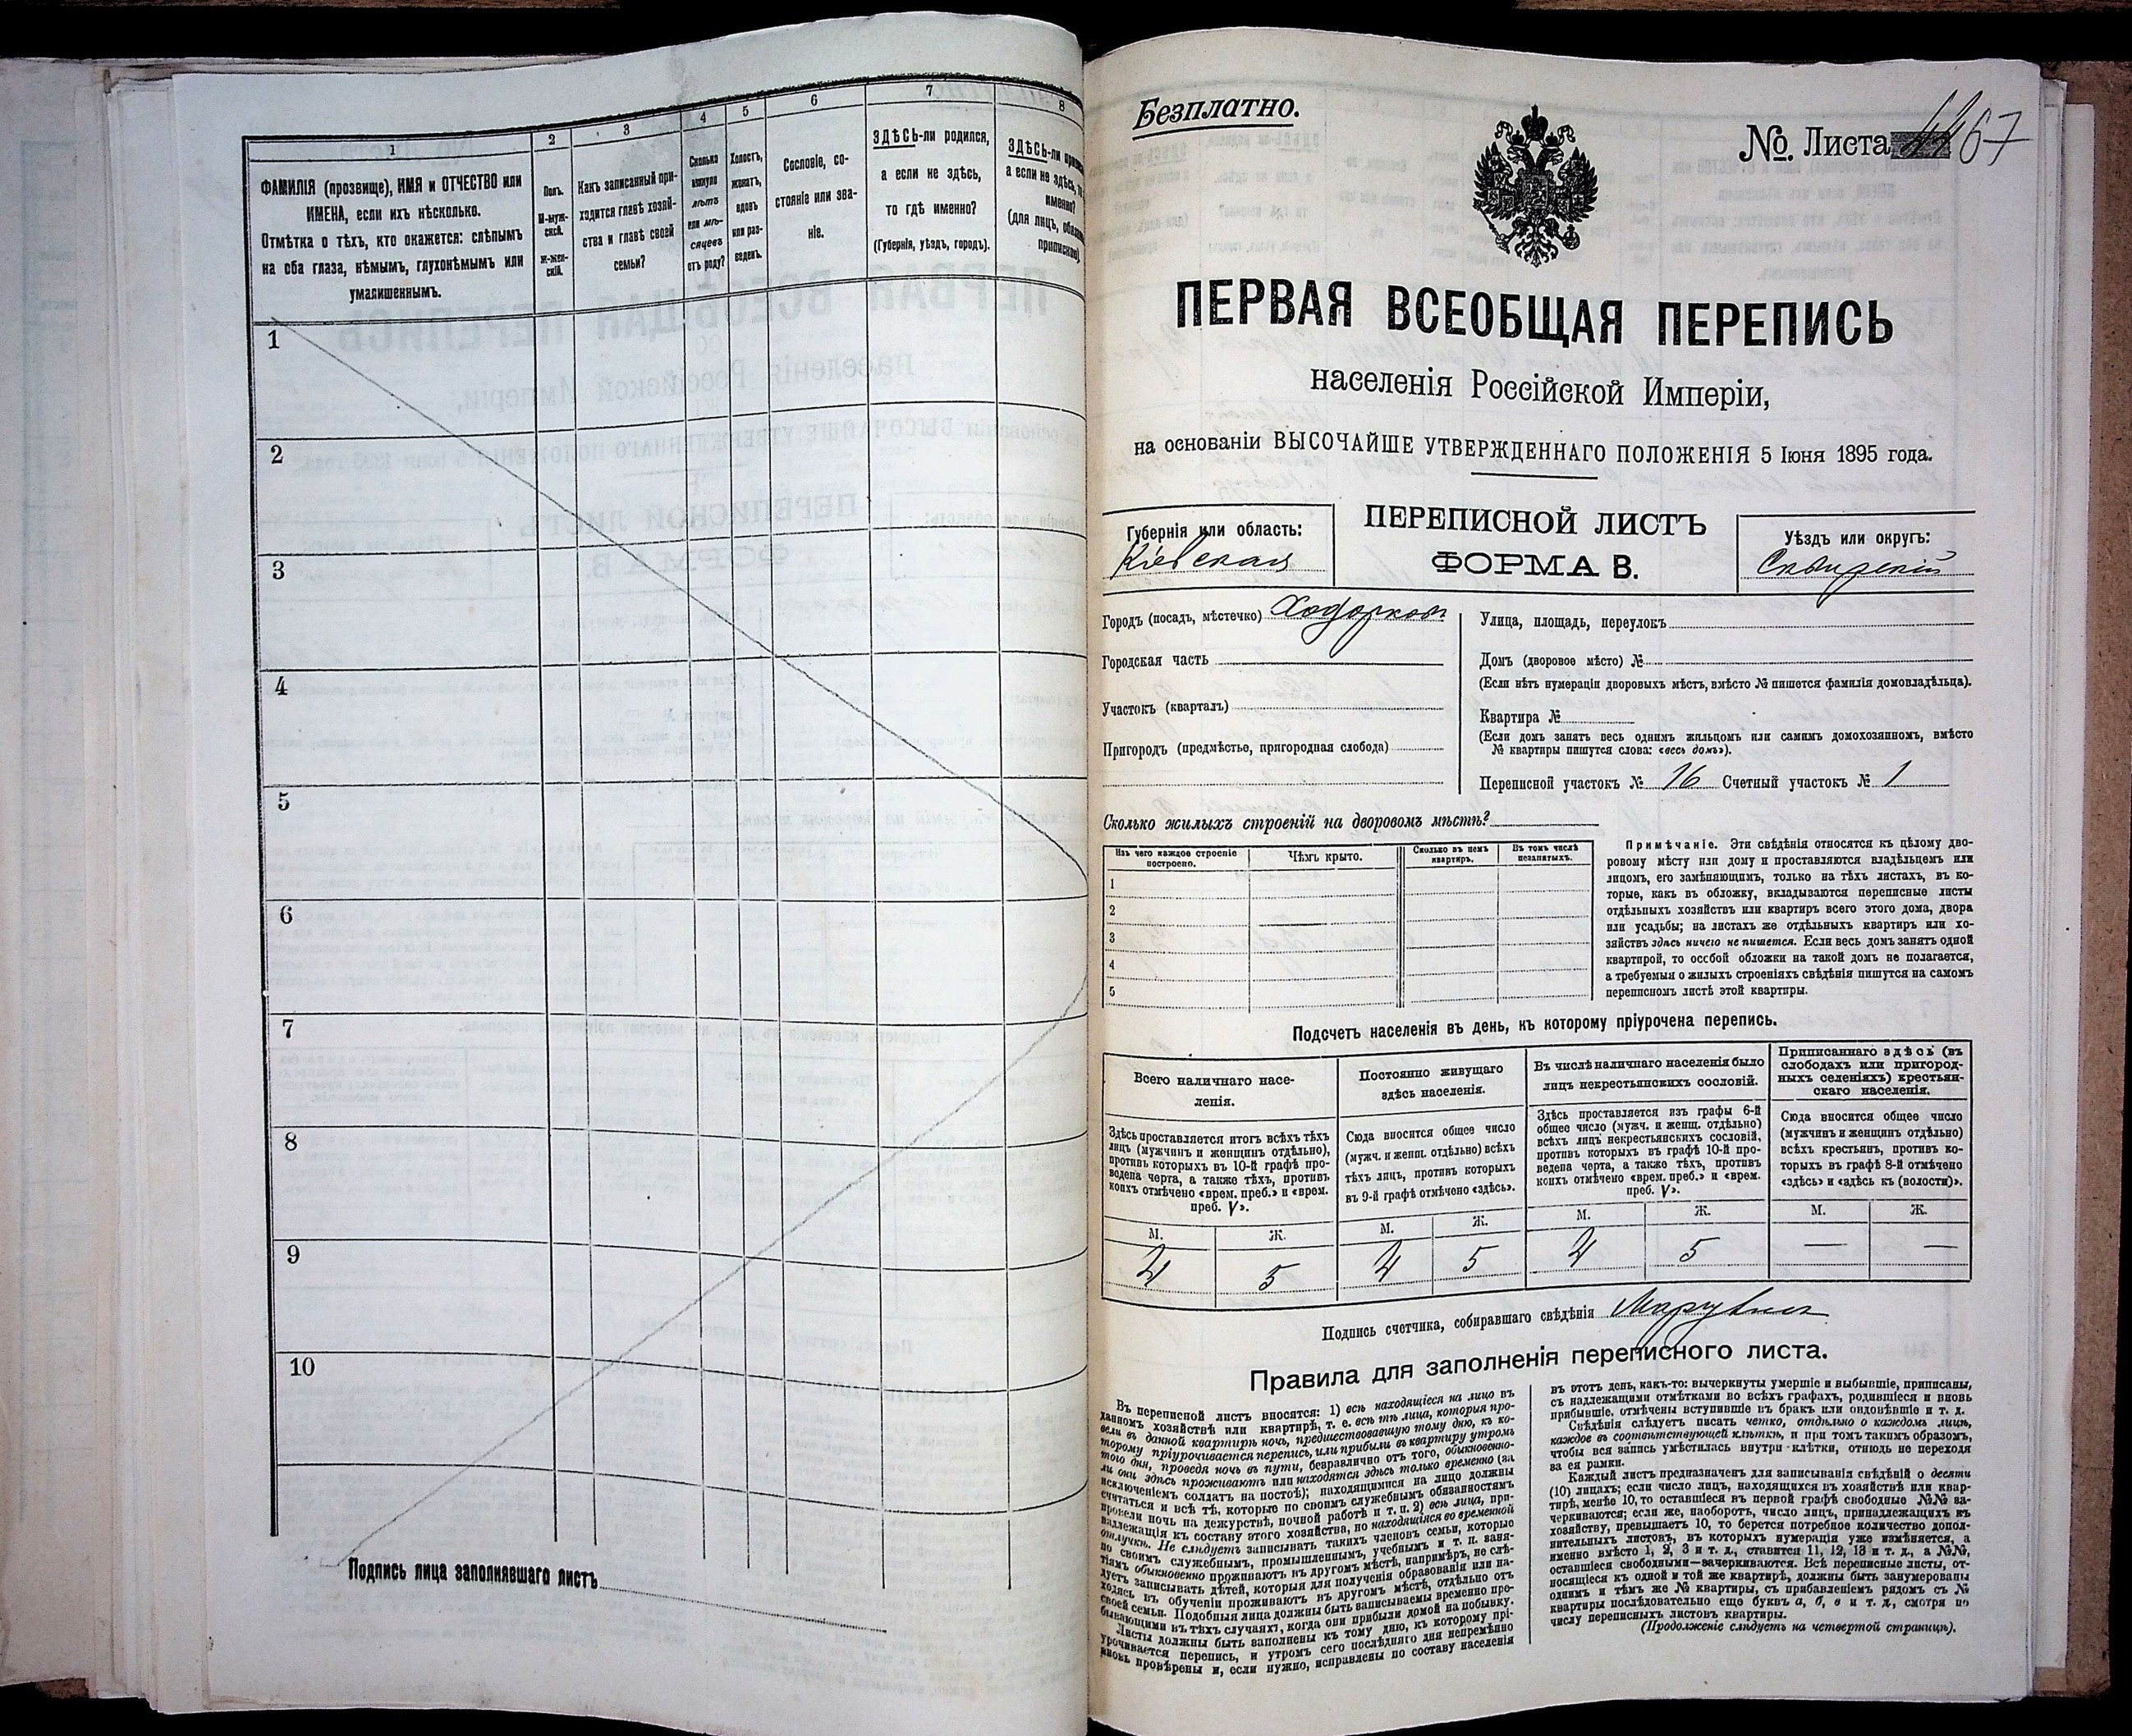 1
2
3
4
5
6
7
8
ФАМИЛІЯ (прозвище), ИМЯ и ОТЧЕСТВО или
ИМЕНА, если ихъ нѣсколько.
Отмѣтка о тѣхъ, кто окажется: слѣпымъ
на оба глаза, нѣмымъ, глухонѣмымъ или
умалишеннымъ.
Полъ.
М-муж-
ской.
Ж-жен-
скій.
Какъ записанный при-
ходится главѣ хозяй-
ства и главѣ своей
семьи?
Сколько
минуло
лѣтъ
или мѣ-
сяцевъ
отъ роду?
Холостъ,
женатъ,
вдовъ
или раз-
веденъ.
Сословіе, со-
стояніе или зва-
ніе.
ЗДѢСЬ-ли родился,
а если не здѣсь,
то гдѣ именно?
(Губернія, уѣздъ, городъ).
ЗДѢСЬ-ли
а если не здѣсь,
именно?
(для лицъ,
1
2
3
4
5
6
7
8
9
10
Подпись лица заполнявшаго листъ
Безплатно.
№. Листа 67
ПЕРВАЯ ВСЕОБЩАЯ ПЕРЕПИСЬ
населенія Россійской Имперіи,
на основаніи ВЫСОЧАЙШЕ УТВЕРЖДЕННАГО ПОЛОЖЕНІЯ 5 Іюня 1895 года.
Губернія или область:
Кіевская
ПЕРЕПИСНОЙ ЛИСТЪ
ФОРМА В.
Уѣздъ или округъ:
Сквирскій
Городъ (посадъ, мѣстечко) Ходорков
Городская часть
Участокъ (кварталъ)
Пригородъ (предмѣстье, пригородная слобода)
Улица, площадь, переулокъ
Домъ (дворовое мѣсто) №
(Если нѣтъ нумераціи дворовыхъ мѣстъ, вмѣсто № пишется фамилія домовладѣльца).
Квартира №
(Если домъ занятъ весь однимъ жильцомъ или самимъ домохозяиномъ, вмѣсто
№ квартиры пишутся слова: «весь домъ»).
Переписной участокъ № 16 Счетный участокъ № 1
Сколько жилыхъ строеній на дворовомъ мѣстѣ?
Изъ чего каждое строеніе
построено.
Чѣмъ крыто.
Сколько въ немъ
квартиръ.
Въ томъ числѣ
незанятыхъ.
1
2
3
4
5
Примѣчаніе. Эти свѣдѣнія относятся къ цѣлому дво-
ровому мѣсту или дому и проставляются владѣльцемъ или
лицомъ, его замѣняющимъ, только на тѣхъ листахъ, въ ко-
торые, какъ въ обложку, вкладываются переписные листы
отдѣльныхъ хозяйствъ или квартиръ всего этого дома, двора
или усадьбы; на листахъ же отдѣльныхъ квартиръ или хо-
зяйствъ здѣсь ничего не пишется. Если весь домъ занятъ одной
квартирой, то особой обложки на такой домъ не полагается,
а требуемыя о жилыхъ строеніяхъ свѣдѣнія пишутся на самомъ
переписномъ листѣ этой квартиры.
Подсчетъ населенія въ день, къ которому пріурочена перепись.
Всего наличнаго насе-
ленія.
Постоянно живущаго
здѣсь населенія.
Въ числѣ наличнаго населенія было
лицъ некрестьянскихъ сословій.
Приписаннаго здѣсь (въ
слободахъ или пригород-
ныхъ селеніяхъ) крестьян-
скаго населенія.
Здѣсь проставляется итогъ всѣхъ тѣхъ
лицъ (мужчинъ и женщинъ отдѣльно),
противъ которыхъ въ 10-й графѣ про-
ведена черта, а также тѣхъ, противъ
коихъ отмѣчено «врем. преб.» и «врем.
преб. V».
Сюда вносится общее число
(мужч. и женщ. отдѣльно) всѣхъ
тѣхъ лицъ, противъ которыхъ
въ 9-й графѣ отмѣчено «здѣсь».
Здѣсь проставляется изъ графы 6-й
общее число (мужч. и женщ. отдѣльно)
всѣхъ лицъ некрестьянскихъ сословій,
противъ которыхъ въ графѣ 10-й про-
ведена черта, а также тѣхъ, противъ
коихъ отмѣчено «врем. преб.» и «врем.
преб. V».
Сюда вносится общее число
(мужчинъ и женщинъ отдѣльно)
всѣхъ крестьянъ, противъ ко-
торыхъ въ графѣ 8-й отмѣчено
«здѣсь» и «здѣсь къ (волости)».
М. Ж. М. Ж. М. Ж. М. Ж.
4 5 4 5 4 5 — —
Подпись счетчика, собиравшаго свѣдѣнія
Правила для заполненія переписного листа.
Въ переписной листъ вносятся: 1) всѣ находящіеся на лицо въ
данномъ хозяйствѣ или квартирѣ, т. е. всѣ тѣ лица, которыя про-
вели въ данной квартирѣ ночь, предшествовавшую тому дню, къ ко-
торому пріурочивается перепись, или прибыли въ квартиру утромъ
того дня, проведя ночь въ пути, безразлично отъ того, обыкновенно-
ли они здѣсь проживаютъ или находятся здѣсь только временно (за
исключеніемъ солдатъ на постоѣ); находящимися на лицо должны
считаться и всѣ тѣ, которые по своимъ служебнымъ обязанностямъ
провели ночь на дежурствѣ, ночной работѣ и т. п. 2) всѣ лица, при-
надлежащія къ составу этого хозяйства, но находящіяся во временной
отлучкѣ. Не слѣдуетъ записывать такихъ членовъ семьи, которые
по своимъ служебнымъ, промышленнымъ, учебнымъ и т. п. заня-
тіямъ обыкновенно проживаютъ въ другомъ мѣстѣ, напримѣръ, не слѣ-
дуетъ записывать дѣтей, которыя для полученія образованія или на-
ходясь въ обученіи проживаютъ въ другомъ мѣстѣ, отдѣльно отъ
своей семьи. Подобныя лица должны быть записываемы временно пре-
бывающими въ тѣхъ случаяхъ, когда они прибыли домой на побывку.
Листы должны быть заполнены къ тому дню, къ которому прі-
урочивается перепись, и утромъ сего послѣдняго дня непремѣнно
вновь провѣрены и, если нужно, исправлены по составу населенія
въ этотъ день, какъ-то: вычеркнуты умершіе и выбывшіе, приписаны,
съ надлежащими отмѣтками во всѣхъ графахъ, родившіеся и вновь
прибывшіе, отмѣчены вступившіе въ бракъ или овдовѣвшіе и т. д.
Свѣдѣнія слѣдуетъ писать четко, отдѣльно о каждомъ лицѣ,
каждое въ соотвѣтствующей клѣткѣ, и при томъ такимъ образомъ,
чтобы вся запись умѣстилась внутри клѣтки, отнюдь не переходя
за ея рамки.
Каждый листъ предназначенъ для записыванія свѣдѣній о десяти
(10) лицахъ; если число лицъ, находящихся въ хозяйствѣ или квар-
тирѣ, менѣе 10, то оставшіеся въ первой графѣ свободные №№ за-
черкиваются; если же, наоборотъ, число лицъ, принадлежащихъ къ
хозяйству, превышаетъ 10, то берется потребное количество допол-
нительныхъ листовъ, въ которыхъ нумерація уже измѣняется, а
именно вмѣсто 1, 2, 3 и т. д., ставится 11, 12, 13 и т. д., а №№,
оставшіеся свободными—зачеркиваются. Всѣ переписные листы, от-
носящіеся къ одной и той же квартирѣ, должны быть занумерованы
однимъ и тѣмъ же № квартиры, съ прибавленіемъ рядомъ съ №
квартиры послѣдовательно еще буквъ а, б, в и т. д., смотря по
числу переписныхъ листовъ квартиры.
(Продолженіе слѣдуетъ на четвертой страницѣ).